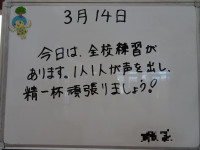 3月14日
今日は、全校練習が
あります。1人1人が声を出し、
精一杯頑張りましょう?